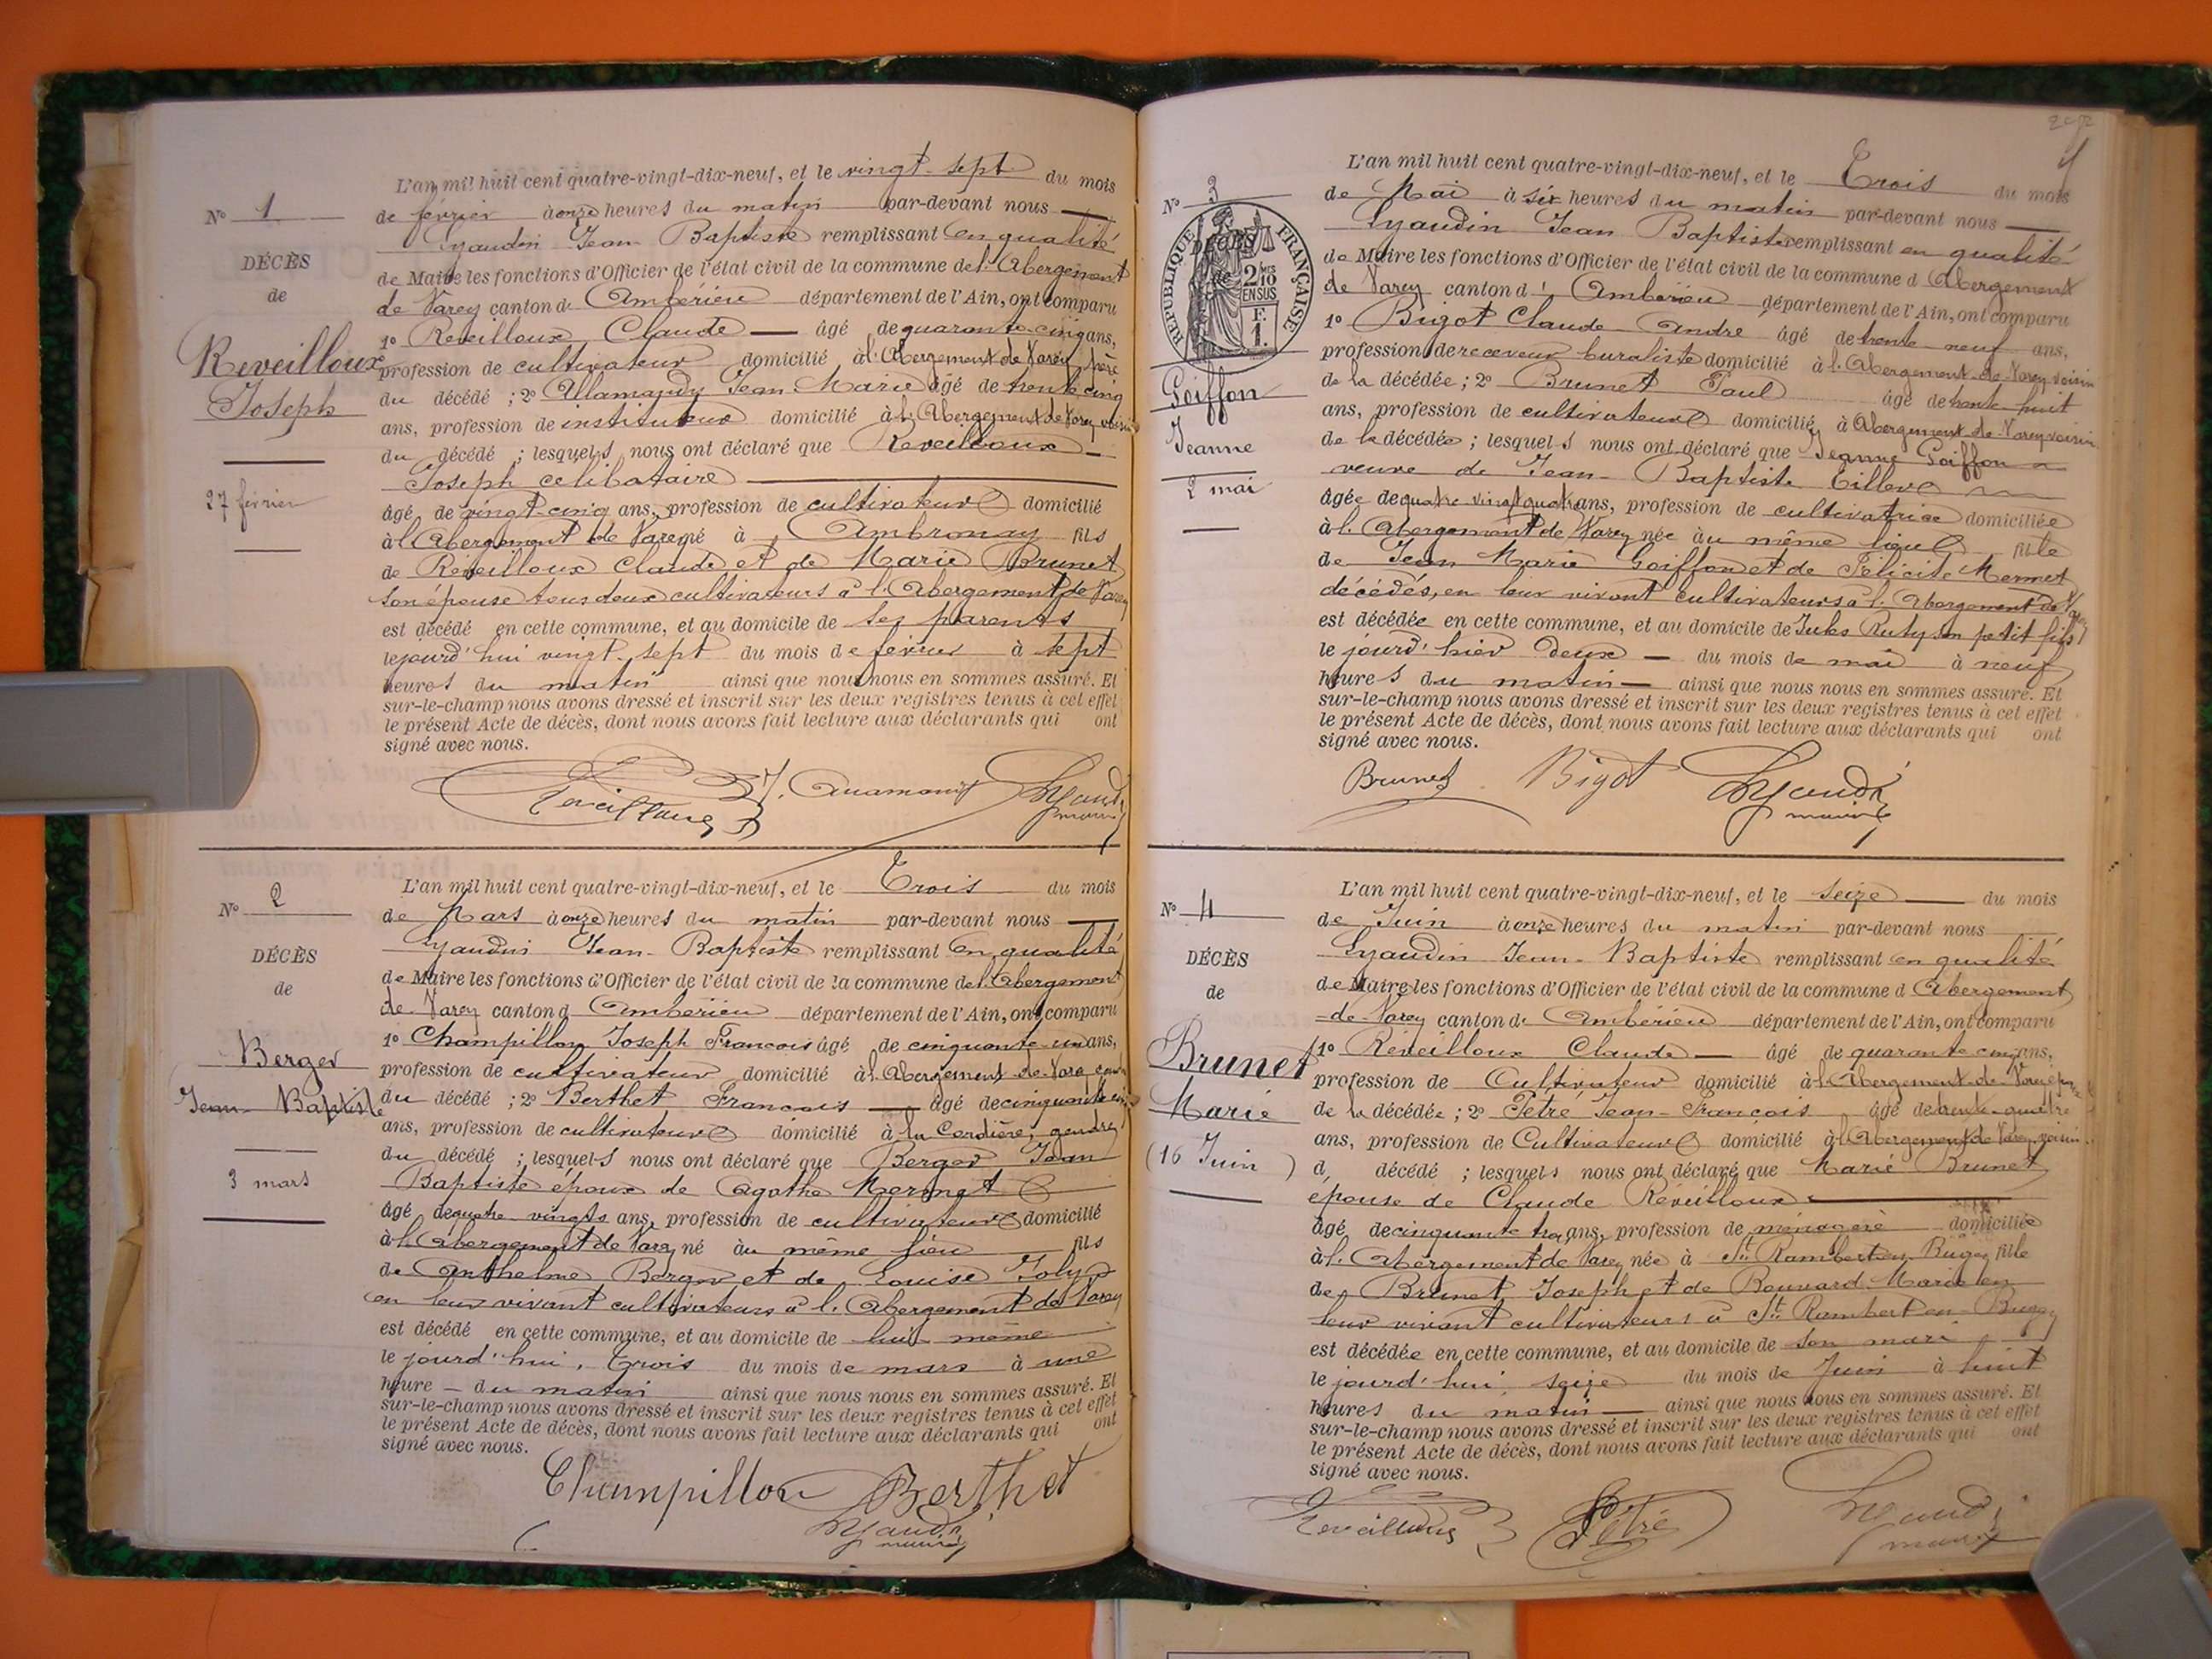 L'an mil huit cent quatre-vingt-dix-neuf, et le vingt-sept du mois
de février à onze heures du matin par-devant nous
Lyaudin Jean-Baptiste remplissant en qualité
de Maire les fonctions d'Officier de l'état civil de la commune de l'Abergement
de Varey canton d'Ambérieu département de l'Ain, ont comparu
1º Reveilloux Claude âgé de quarante-cinq ans,
profession de cultivateur domicilié à l'Abergement de Varey père
du décédé ; 2º Jean Marie âgé de trente cinq
ans, profession de instituteur domicilié à l'Abergement de Varey voisin
du décédé ; lesquels nous ont déclaré que Reveilloux
Joseph célibataire
âgé de vingt-cinq ans, profession de cultivateur domicilié
à l'Abergement de Varey né à Ambronay fils
de Reveilloux Claude et de Marie Brunet
son épouse tous deux cultivateurs à l'Abergement de Varey
est décédé en cette commune, et au domicile de ses parents
le jourd'hui vingt-sept du mois de février à sept
heures du matin ainsi que nous nous en sommes assuré. Et
sur-le-champ nous avons dressé et inscrit sur les deux registres tenus à cet effet
le présent Acte de décès, dont nous avons fait lecture aux déclarants qui ont
signé avec nous.
Nº 1
DÉCÈS
de
Reveilloux
Joseph
27 février
Reveilloux
Lyaudin
maire
L'an mil huit cent quatre-vingt-dix-neuf, et le Trois du mois
de Mars à onze heures du matin par-devant nous
Lyaudin Jean-Baptiste remplissant en qualité
de Maire les fonctions d'Officier de l'état civil de la commune de l'Abergement
de Varey canton d'Ambérieu département de l'Ain, ont comparu
1º Champillon Joseph François âgé de cinquante-un ans,
profession de cultivateur domicilié à l'Abergement de Varey
du décédé ; 2º Berthet François âgé de cinquante
ans, profession de cultivateur domicilié à la Cordière, gendre
du décédé ; lesquels nous ont déclaré que Berger Jean
Baptiste époux de Agathe Mermet
âgé de quatre-vingts ans, profession de cultivateur domicilié
à l'Abergement de Varey né au même lieu fils
de Anthelme Berger et de Louise Joly
en leur vivant cultivateurs à l'Abergement de Varey
est décédé en cette commune, et au domicile de lui-même
le jourd'hui, Trois du mois de mars à une
heure du matin ainsi que nous nous en sommes assuré. Et
sur-le-champ nous avons dressé et inscrit sur les deux registres tenus à cet effet
le présent Acte de décès, dont nous avons fait lecture aux déclarants qui ont
signé avec nous.
Nº 2
DÉCÈS
de
Berger
Jean-Baptiste
3 mars
Champillon Berthet
Lyaudin
maire
L'an mil huit cent quatre-vingt-dix-neuf, et le Trois du mois
de Mai à six heures du matin par-devant nous
Lyaudin Jean Baptiste remplissant en qualité
de Maire les fonctions d'Officier de l'état civil de la commune d'Abergement
de Varey canton d'Ambérieu département de l'Ain, ont comparu
1º Bigot Claude-André âgé de trente-neuf ans,
profession de receveur buraliste domicilié à l'Abergement-de-Varey voisin
de la décédée ; 2º Brunet Paul âgé de trente huit
ans, profession de cultivateur domicilié à Abergement-de-Varey voisin
de la décédée ; lesquels nous ont déclaré que Jeanne Goiffon
veuve de Jean-Baptiste
âgée de quatre-vingt quatre ans, profession de cultivatrice domiciliée
à l'Abergement de Varey née au même lieu fille
de Jean Marie Goiffon et de Félicité Mermet
décédés, en leur vivant cultivateurs à l'Abergement de Varey
est décédée en cette commune, et au domicile de Jules Ruty son petit fils
le jourd'hier Deux du mois de mai à neuf
heures du matin ainsi que nous nous en sommes assuré. Et
sur-le-champ nous avons dressé et inscrit sur les deux registres tenus à cet effet
le présent Acte de décès, dont nous avons fait lecture aux déclarants qui ont
signé avec nous.
Nº 3
DÉCÈS
de
RÉPUBLIQUE FRANÇAISE
2/10
EN SUS
F.
1.
Goiffon
Jeanne
2 mai
Brunet Bigot Lyaudin
maire
L'an mil huit cent quatre-vingt-dix-neuf, et le seize du mois
de Juin à onze heures du matin par-devant nous
Lyaudin Jean-Baptiste remplissant en qualité
de Maire les fonctions d'Officier de l'état civil de la commune d'Abergement
de-Varey canton d'Ambérieu département de l'Ain, ont comparu
1º Réveilloux Claude âgé de quarante cinq ans,
profession de Cultivateur domicilié à l'Abergement-de-Varey époux
de la décédée ; 2º Pétré Jean-François âgé de trente-quatre
ans, profession de Cultivateur domicilié à l'Abergement de Varey voisin
d décédé ; lesquels nous ont déclaré que Marie Brunet
épouse de Claude Réveilloux
âgé de cinquante ans, profession de ménagère domiciliée
à l'Abergement de Varey née à St Rambert en Bugey fille
de Brunet Joseph et de Bouvard Marie en
leur vivant cultivateurs à St Rambert en-Bugey
est décédée en cette commune, et au domicile de son mari
le jourd'hui seize du mois de Juin à huit
heures du matin ainsi que nous nous en sommes assuré. Et
sur-le-champ nous avons dressé et inscrit sur les deux registres tenus à cet effet
le présent Acte de décès, dont nous avons fait lecture aux déclarants qui ont
signé avec nous.
Nº 4
DÉCÈS
de
Brunet
Marie
(16 Juin)
Reveilloux Pétré Lyaudin
maire